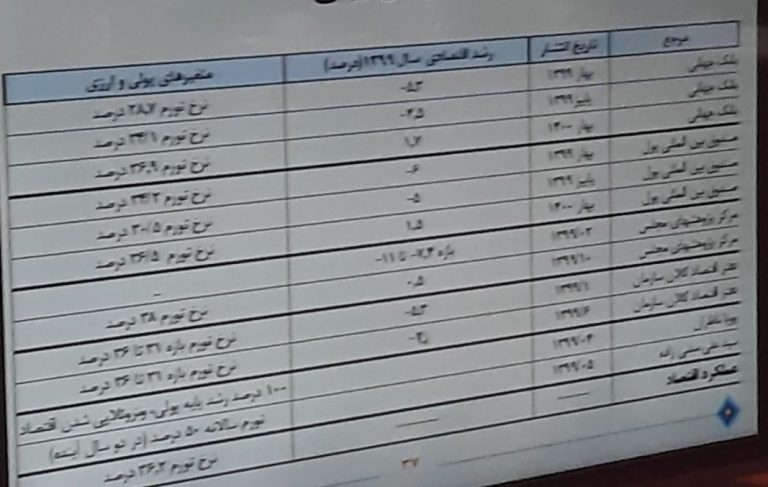 مرجع تاریخ انتشار رشد اقتصادی سال ۱۳۹۹(درصد) متغیرهای پولی و ارزی
بانک جهانی بهار ۱۳۹۹ -۵.۳ نرخ تورم ۲۸.۷ درصد
بانک جهانی پاییز ۱۳۹۹ -۴.۵ نرخ تورم ۳۴/۱ درصد
بانک جهانی بهار ۱۴۰۰ ۱.۷ نرخ تورم ۳۶.۹ درصد
صندوق بین المللی پول بهار ۱۳۹۹ -۶ نرخ تورم ۳۴/۲ درصد
صندوق بین المللی پول پاییز ۱۳۹۹ -۵ نرخ تورم ۳۰/۵ درصد
صندوق بین المللی پول بهار ۱۴۰۰ ۱.۵ نرخ تورم ۳۶/۵ درصد
مرکز پژوهشهای مجلس ۱۳۹۹/۰۲ بازه ۷.۴- تا ۱۱- –
مرکز پژوهشهای مجلس ۱۳۹۹/۱۰ ۰.۵ نرخ تورم ۳۸ درصد
دفتر اقتصاد کلان سازمان ۱۳۹۹/۱ -۵.۳ نرخ تورم بازه ۳۱ تا ۳۶ درصد
دفتر اقتصاد کلان سازمان ۱۳۹۹/۶ نرخ تورم بازه ۳۱ تا ۳۶ درصد
پویا ناظران ۱۳۹۹/۰۴ ۱۰۰ درصد رشد پایه پولی، ونزوئلایی شدن اقتصاد
سید علی مدنی زاده ۱۳۹۹/۰۵ تورم سالانه ۵۰ درصد (در دو سال آینده)
عملکرد اقتصاد —— —— نرخ تورم ۳۶.۲ درصد
۳۷